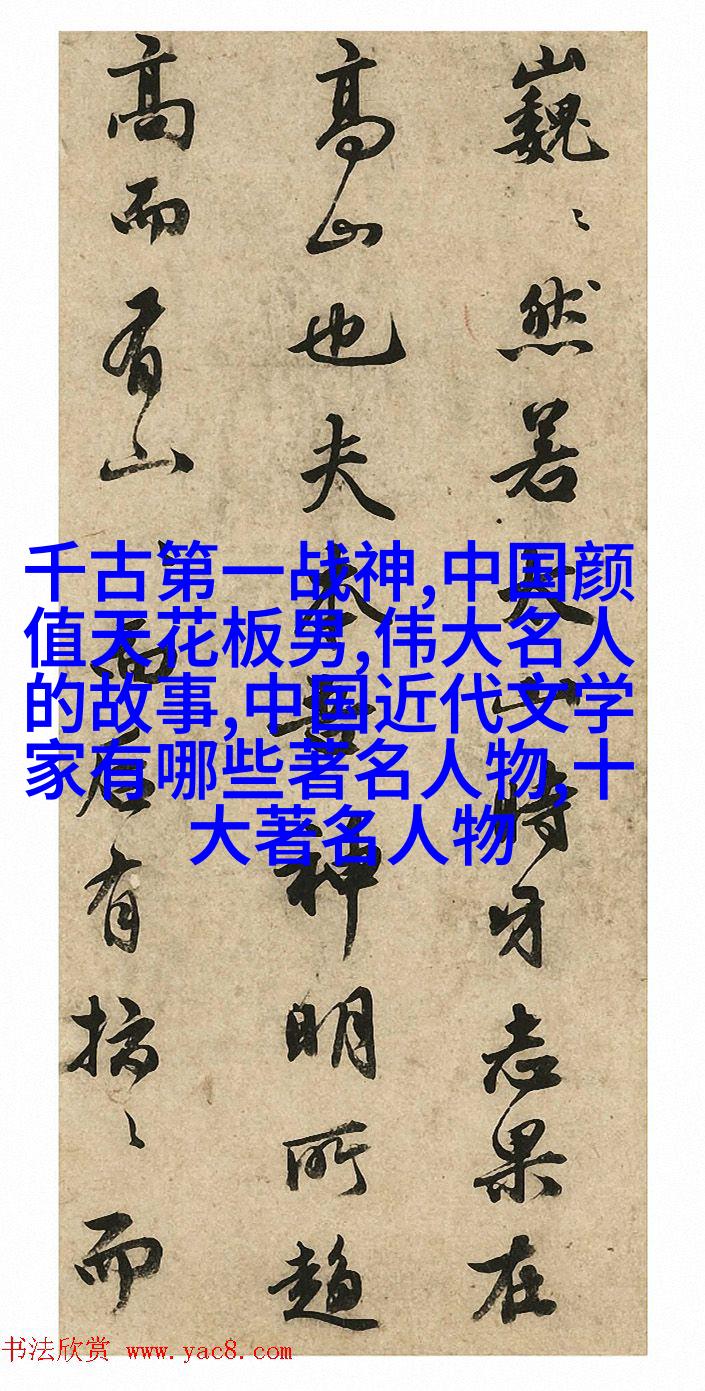 巍〻然若山時牙志果在
高山也夫神明所趨
高而有山〻而后有〻而
千古第一战神,中国颜
值天花板男,伟大名人
的故事,中国近代文学
家有哪些著名人物,十
大著名人物
书法欣赏 www.yac8.com